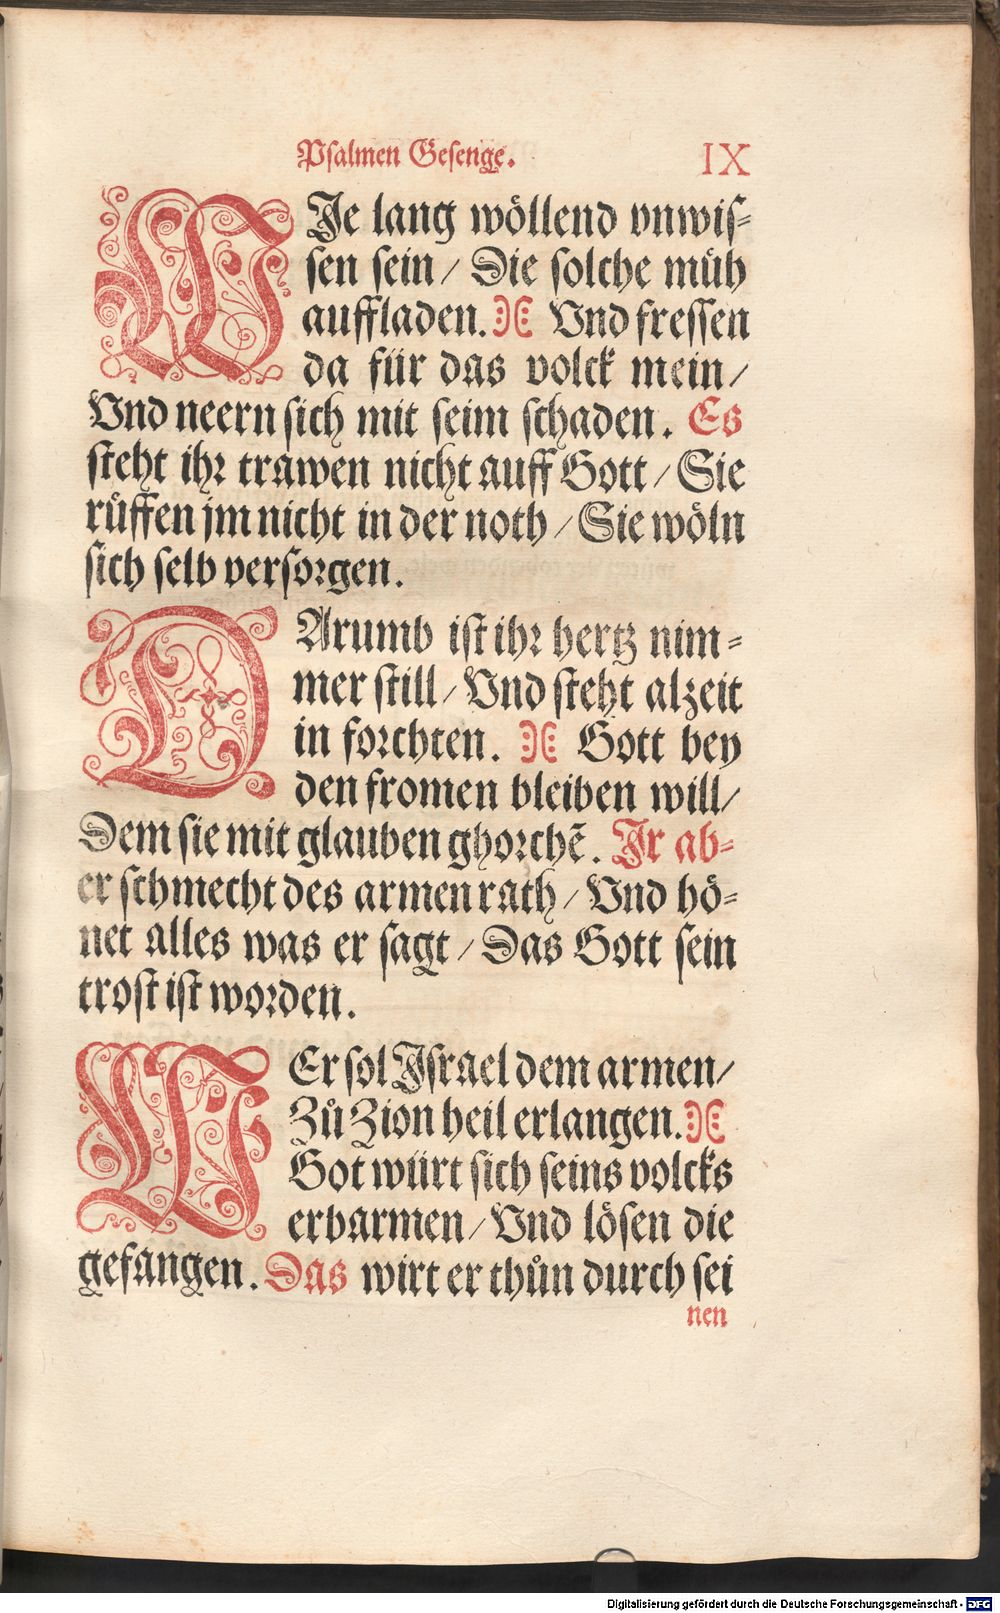 Psalmen Gesenge. IX
WJe lang wöllend vnwiſ⸗
ſen ſein / Die ſolche mühͤ
auffladen. Vnd freſſen
da für das volck mein /
Vnd neern ſich mit ſeim ſchaden. Es
ſteht ihr trawen nicht auff Gott / Sie
ruͤffen jm nicht in der noth / Sie wöln
ſich ſelb verſorgen.
DArumb iſt ihr hertz nim⸗
mer ſtill / Vnd ſteht alzeit
in forchten. Gott bey
den fromen bleiben will /
Dem ſie mit glauben ghorchẽ. Jr ab⸗
er ſchmecht des armen rath / Vnd hö⸗
net alles was er ſagt / Das Gott ſein
troſt iſt worden.
WEr ſol Jſrael dem armen /
Zuͦ Zion heil erlangen.
Got würt ſich ſeins volcks
erbarmen / Vnd löſen die
gefangen. Das wirt er thuͦn durch ſei
nen
Digitalisierung gefördert durch die Deutsche Forschungsgemeinschaft - DFG